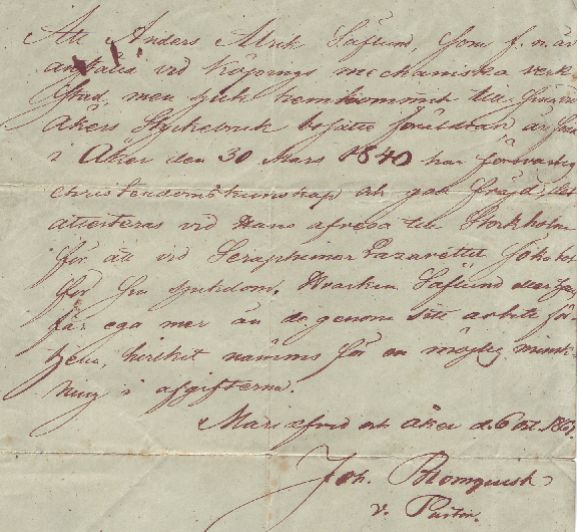 Att Anders Alrik Säflund, som f. n. är
anstald vid Köpings mechaniska verk-
stad, men sjuk hemkommit till
Åkers Styckebruk boställe föräldrar är född
i Åker den 30 Mars 1840 har försvarlig
christendomskunskap och god frejd, det
attesteras vid hans afresa till Stockholm
för att vid Seraphimer Lazarettet söka bot
för sin sjukdom. Hvarken Säflund eller
far ega mer än de genom sitt arbete för-
tjena, hvilket nämns för en möjlig minsk-
ning i afgifterna.
Mariefred och Åker d. 6 Oct.
Joh. Blomquist
v. Pastor.